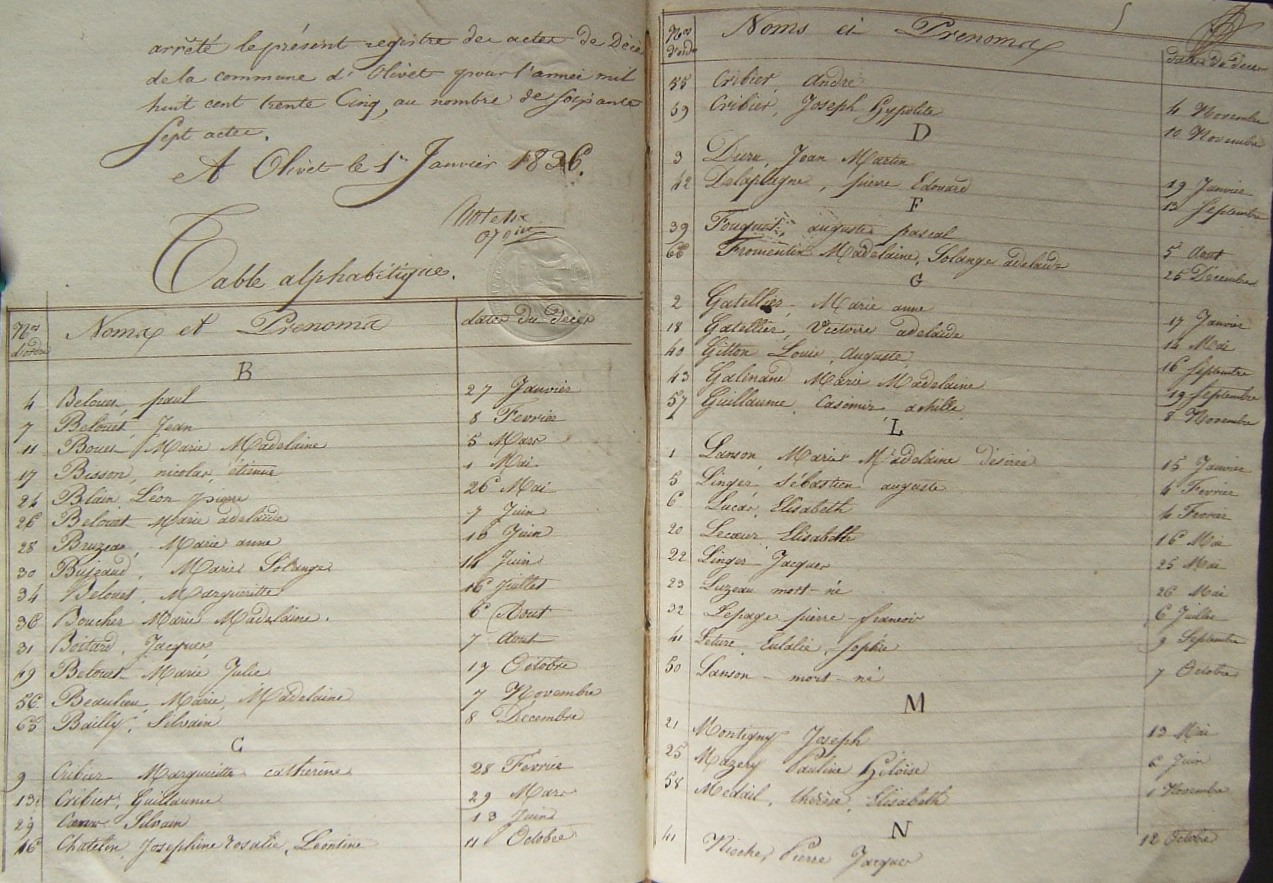 arrêté le présent registre des actes de Décè
de la commune d'Olivet pour l'année mil
huit cent trente Cinq, au nombre de soixante
Sept actes.
A Olivet le 1er Janvier 1836.
Table alphabétique.
Nos d'ordre Noms et Prenoms dates du Décès
B
4 Belouet paul 27 Janvier
7 Belouet Jean 8 Fevrier
11 Bouet Marie Madelaine 5 Mars
17 Bisson, nicolas, étienne 1 Mai
24 Blain Léon pierre 26 Mai
26 Belouet Marie adelaide 7 Juin
28 Bruzeau, Marie anne 10 Juin
30 Marie Solange 14 Juin
34 Belouet, Marguerite 16 Juillet
36 Boucher Marie Madelaine. 6 Aout
31 Boitard, Jacques 7 Aout
49 Belouet Marie Julie 19 Octobre
56 Beaulieu, Marie, Madelaine 7 Novembre
63 Bailly, Silvain 8 Decembre
C
9 Cribier Marguerite catherine 28 Fevrier
13 Cribier, Guillaume 29 Mars
29 Silvain 13 Juin
46 Chatelin, Josephine rosalie, Leontine 11 Octobre
Nos d'ordre Noms et Prenoms dates de deces
55 Cribier, André 4 Novembre
59 Cribier, Joseph Hypolite 10 Novembre
D
3 Duru, Jean Martin 19 Janvier
42 Delaplagne, pierre Edouard 13 Septembre
F
39 Fouquet, auguste pascal 5 Aout
66 Fromentin Madelaine, Solange adelaide 25 Decembre
G
2 Gatellier, Marie anne 17 Janvier
18 Gatellier, Victoire adelaide 14 Mai
40 Gitton Louis, Auguste 16 Septembre
43 Galinand Marie Madelaine 19 Septembre
57 Guillaume, Casimir achille 8 Novembre
L
1 Lanson Marie Madelaine désirée 15 Janvier
5 Linger Sébastien auguste 4 Fevrier
6 Lucas, Elisabeth 4 Fevrier
20 Lecœur Elisabeth 16 Mai
22 Linger Jacques 25 Mai
23 Luzeau mort-né 26 Mai
32 Lepage pierre francois 6 Juillet
41 Eulalie, Sophie 9 Septembre
50 Lanson mort-né 7 Octobre
M
21 Montigny Joseph 13 Mai
25 Mazery Pauline Héloïse 6 Juin
58 Medail, thérèse, Elisabeth Novembre
N
41 Pierre Jacques 12 Octobre